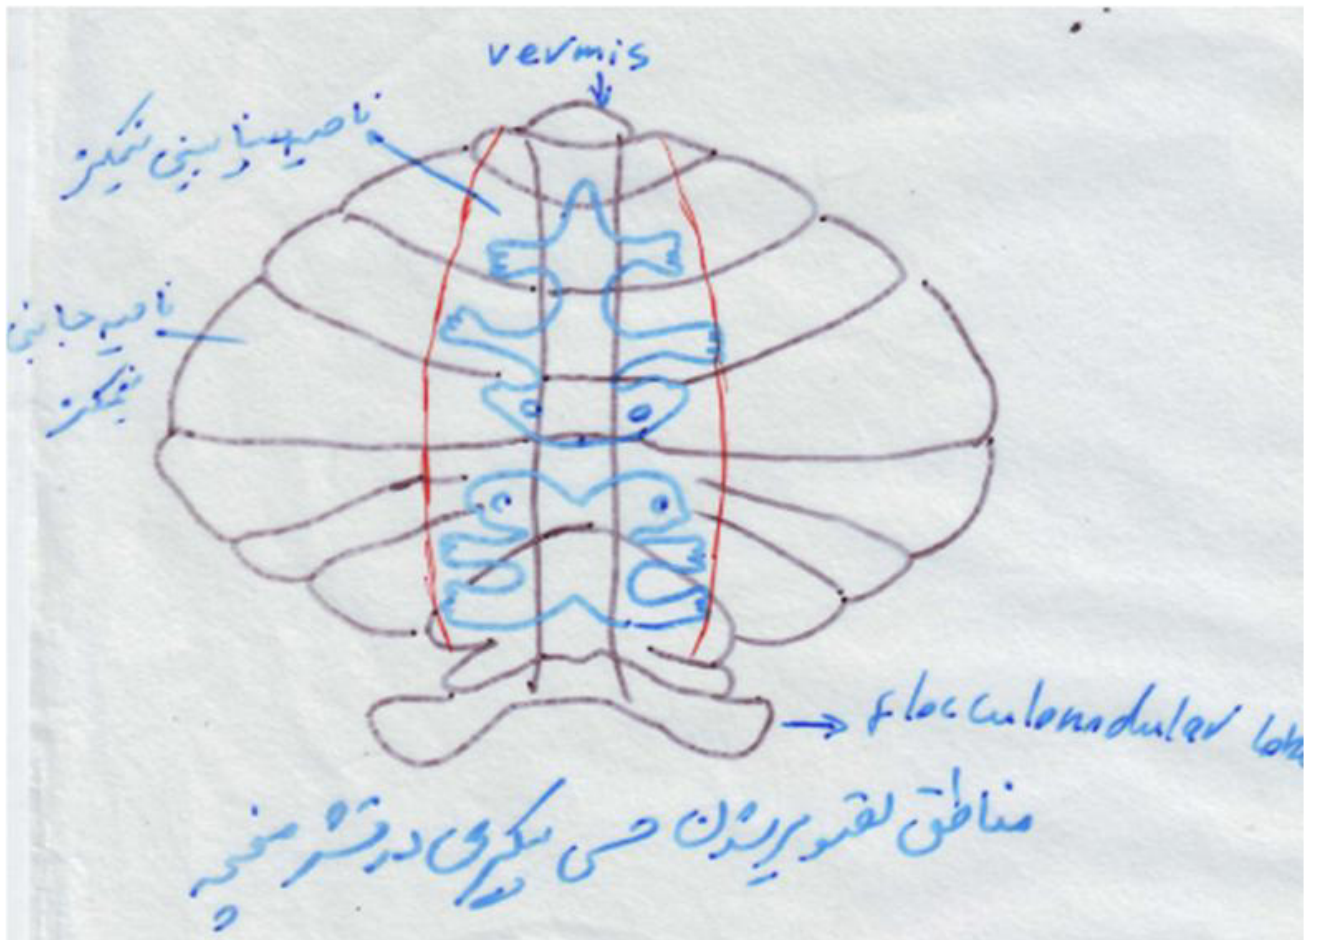 vermis
ناحیه بینابینی نیمکز
ناحیه جانبی
نیمکز
flocculonodular lobe
مناطق تصویرشدن حسی پیکری در قشر مخچه